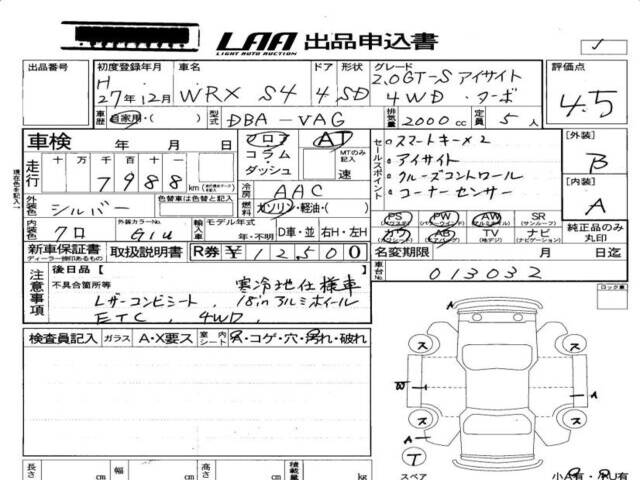 LAA 出品申込書
LIGHT AUTO AUCTION
出品番号 初度登録年月 車名 ドア 形状 グレード 評価点
H 27年12月 WRX S4 4 SD 2.0GT-S アイサイト
4WD ターボ
4.5
車歴 自家用・( ) 型式 DBA-VAG 排気量 2000cc 定員 5人
車検 年 月 日 フロア コラム ダッシュ AT MTのみ記入 速
走行 十 万 千 百 十
7988 km
セールスポイント
スマートキー×2
アイサイト
クルーズコントロール
コーナーセンサー
[外装]
B
[内装]
A
外装色 シルバー 色替車は色替え前の色 冷房 AAC
燃料 ガソリン・軽油・( )
内装色 クロ 外装カラーNo. G1U 輸入車 モデル年式 年・不明 D車・並 右H・左H
PS PW AW SR
(サンルーフ)
カワ AB TV ナビ
(地デジ) (ナビゲーション)
純正品のみ丸印
新車保証書 取扱説明書 R券 ¥12,500 名変期限 月 日迄
ディーラー捺印あるもの
車台No. 013032
現在色を記入
注意事項 後日品【 】
不具合箇所等 寒冷地仕様車
レザーコンビシート、18inアルミホイール
ETC、4WD、
ロック車
検査員記入 ガラス A・X要ス 室内 シート A・コゲ・穴・汚れ・破れ
A
ス ス
W A
ス ス
A
T
スペア
小A有・小U有
長さ cm 幅 cm 高さ cm 積載量 kg